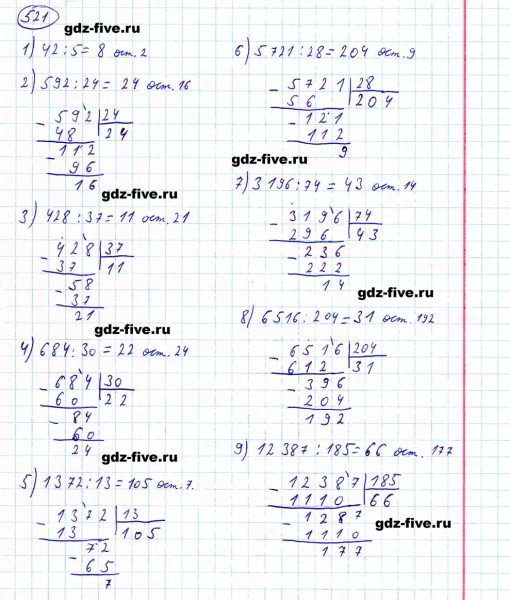 521
gdz-five.ru
1) 42 : 5 = 8 ост. 2
2) 592 : 24 = 24 ост. 16
- 592 | 24
48 | 24
- 112
96
16
gdz-five.ru
3) 428 : 37 = 11 ост. 21
- 428 | 37
37 | 11
- 58
37
21
gdz-five.ru
4) 684 : 30 = 22 ост. 24
- 684 | 30
60 | 22
- 84
60
24
gdz-five.ru
5) 1372 : 13 = 105 ост. 7.
- 1372 | 13
13 | 105
- 72
65
7
gdz-five.ru
6) 5721 : 28 = 204 ост. 9
- 5721 | 28
56 | 204
- 121
112
9
gdz-five.ru
7) 3196 : 74 = 43 ост. 14
- 3196 | 74
296 | 43
- 236
222
14
gdz-five.ru
8) 6516 : 204 = 31 ост. 192
- 6516 | 204
612 | 31
- 396
204
192
9) 12387 : 185 = 66 ост. 177
- 12387 | 185
1110 | 66
- 1287
1110
177
gdz-five.ru